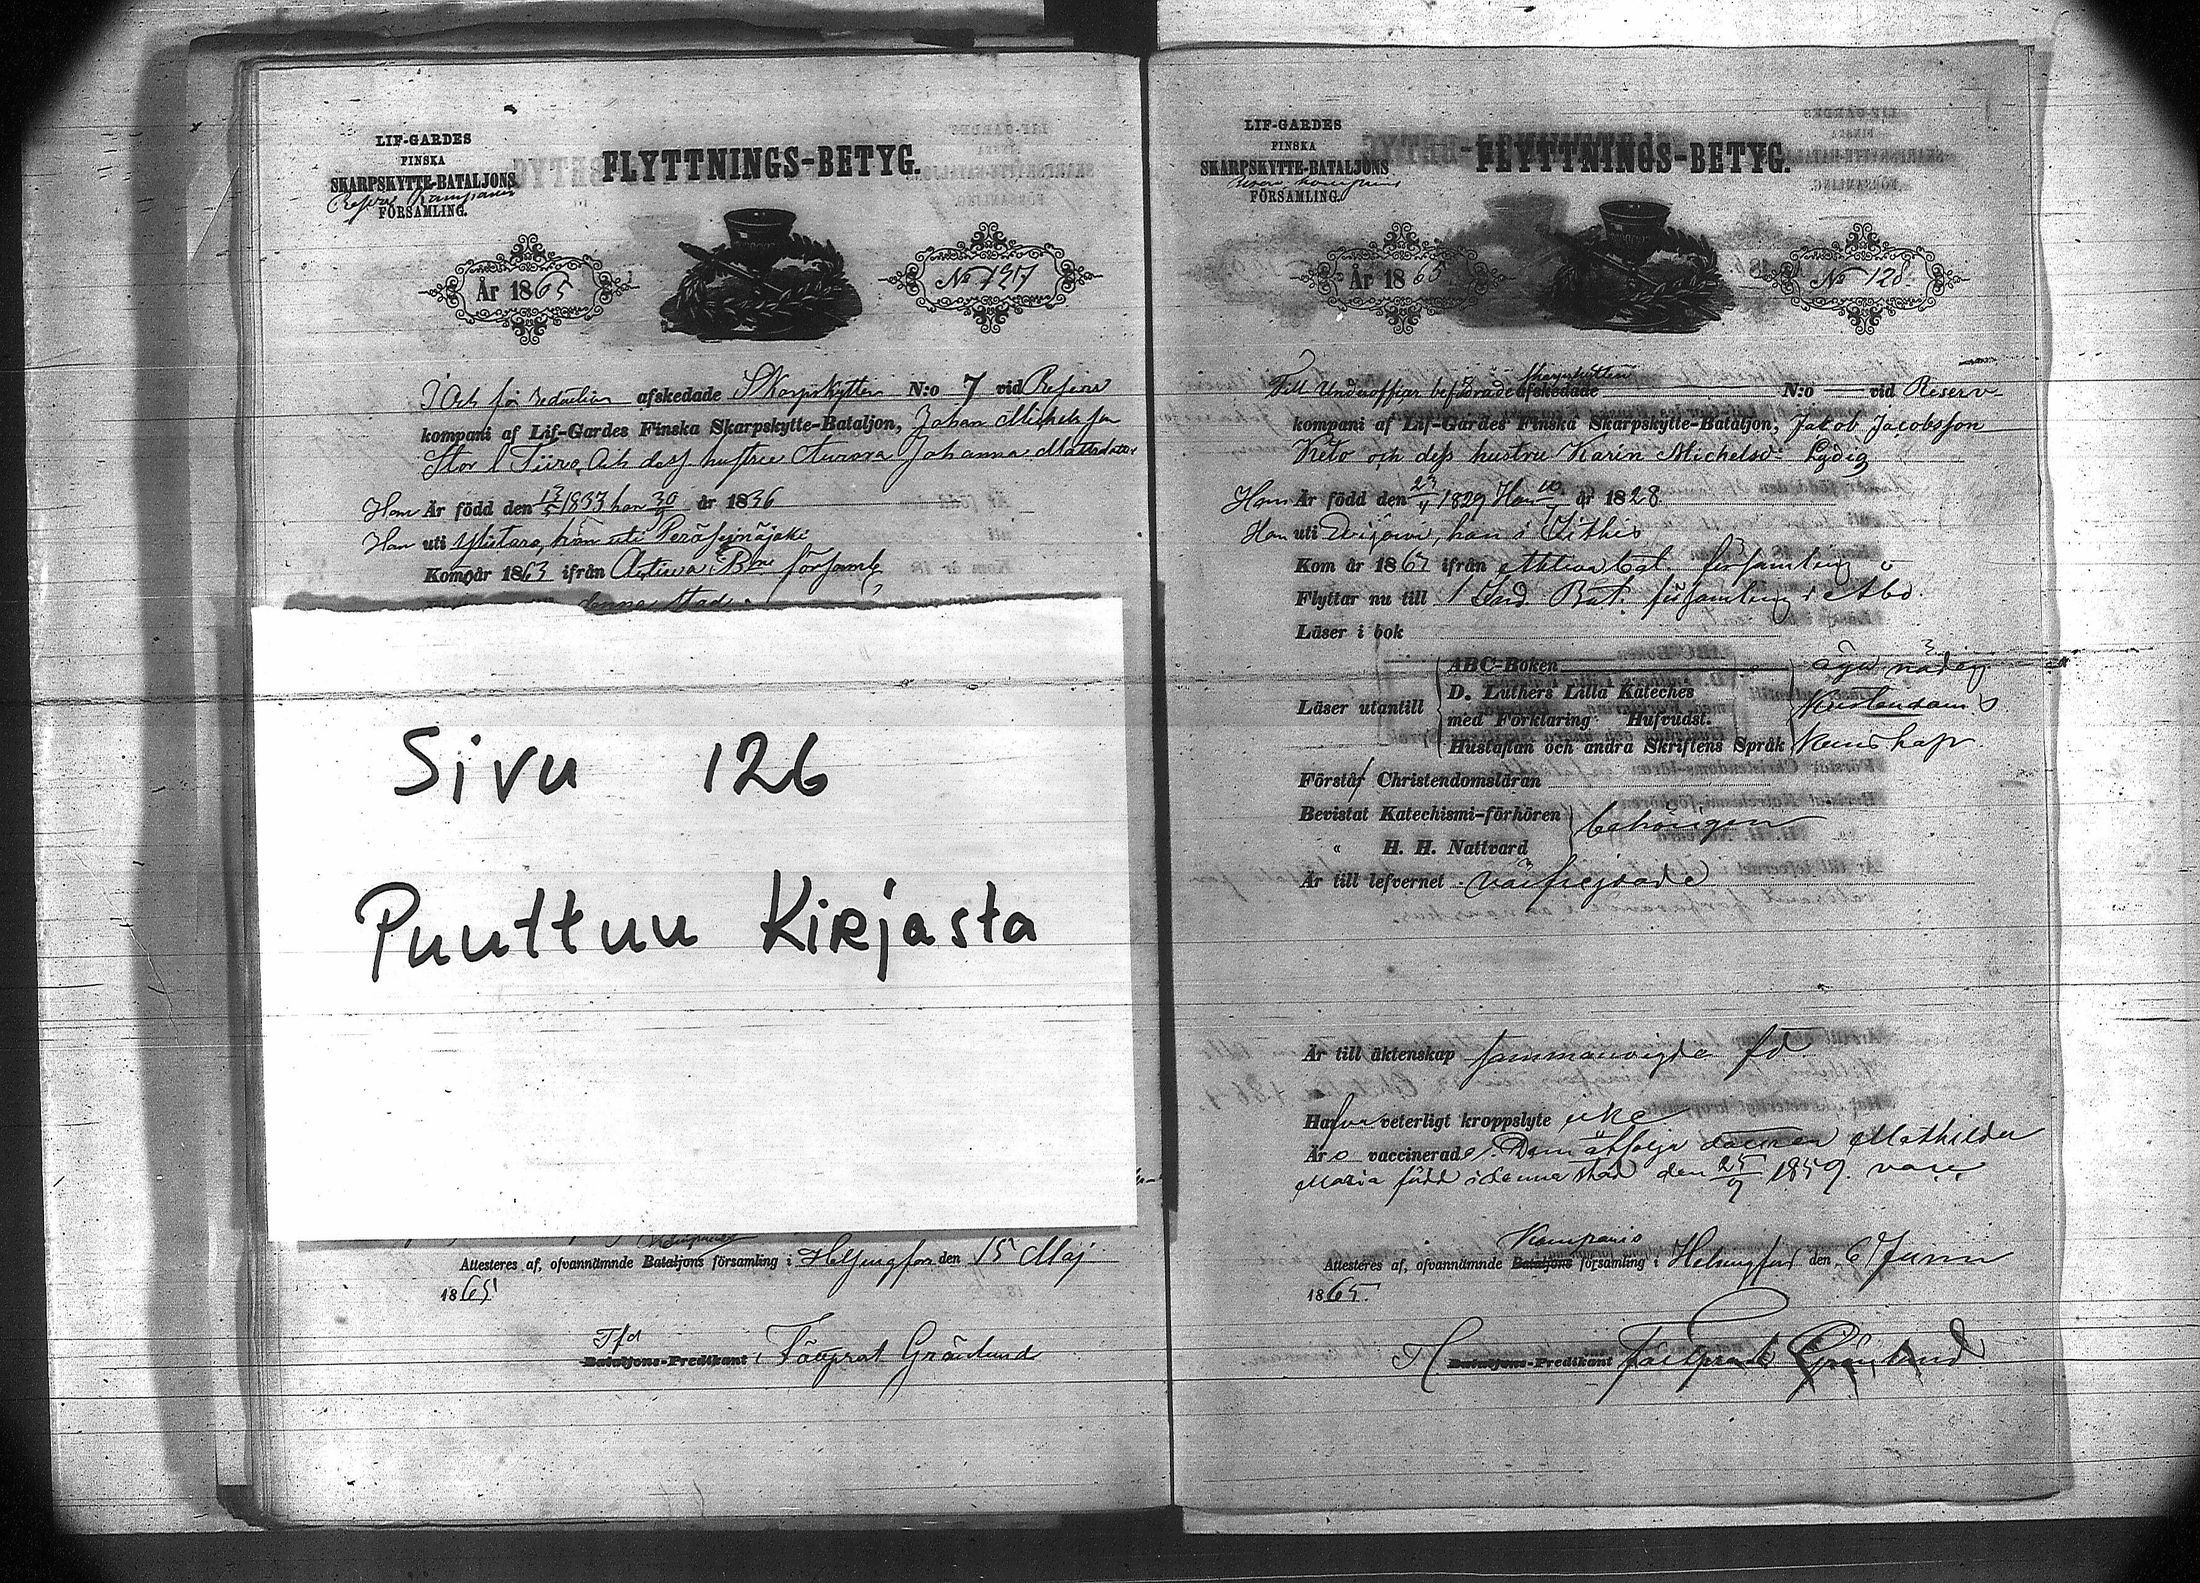 LIF-GARDES
FINSKA
SKARPSKYTTE-BATALJONS
Reserv Kompanies
FÖRSAMLING.
FLYTTNINGS-BETYG.
År 1865
No 127
afskedade Skarpskytten N:o 7 vid Reserv
kompani af Lif-Gardes Finska Skarpskytte-Bataljon, Johan Michelsson
Stor och dess hustru Aurora Johanna
Han Är född den 13/5 1837 hon 30/ år 1836
Han uti Ylistaro, hon uti Peräseinäjoki
Kom år 1863 ifrån Activa församl
denna stad.
Sivu 126
Puuttuu Kirjasta
Attesteres af, ofvannämnde Bataljons församling i Helsingfors den 15 Maj
1865.
Bataljons-Predikant Grönlund
LIF-GARDES
FINSKA
SKARPSKYTTE-BATALJONS
Reserv Kompanies
FÖRSAMLING.
FLYTTNINGS-BETYG.
År 1865
No 128.
Till Underofficer befordrade afskedade Skarpskytten N:o — vid Reserv-
kompani af Lif-Gardes Finska Skarpskytte-Bataljon, Jakob Jacobsson
Keto och dess hustru Karin Michelsd:
Han Är född den 23/11 1829 Hon 10/ år 1828
Han uti hon i Kithis
Kom år 1863 ifrån Aktiva Bat. församling
Flyttar nu till 1 Ind. Bat. församling i Åbo.
Läser i bok
Läser utantill
ABC-Boken
D. Luthers Lilla Kateches
med Förklaring Hufvudst.
Hustaflan och andra Skriftens Språk
äga nödig
Kristendoms
Kunskap
Förstår Christendomsläran
Bevistat Katechismi-förhören
" H. H. Nattvard
behörigen
Är till lefvernet välfrejdade
Är till äktenskap sammanvigda
Hafva veterligt kroppslyte icke
Äro vaccinerade. Dem åtföljer dottren Mathilda
Maria född i denna stad den 25/9 1859. vacc.
Kompanis
Attesteres af, ofvannämnde Bataljons församling i Helsingfors den 6 Juni
1865.
Bataljons-Predikant Grönlund